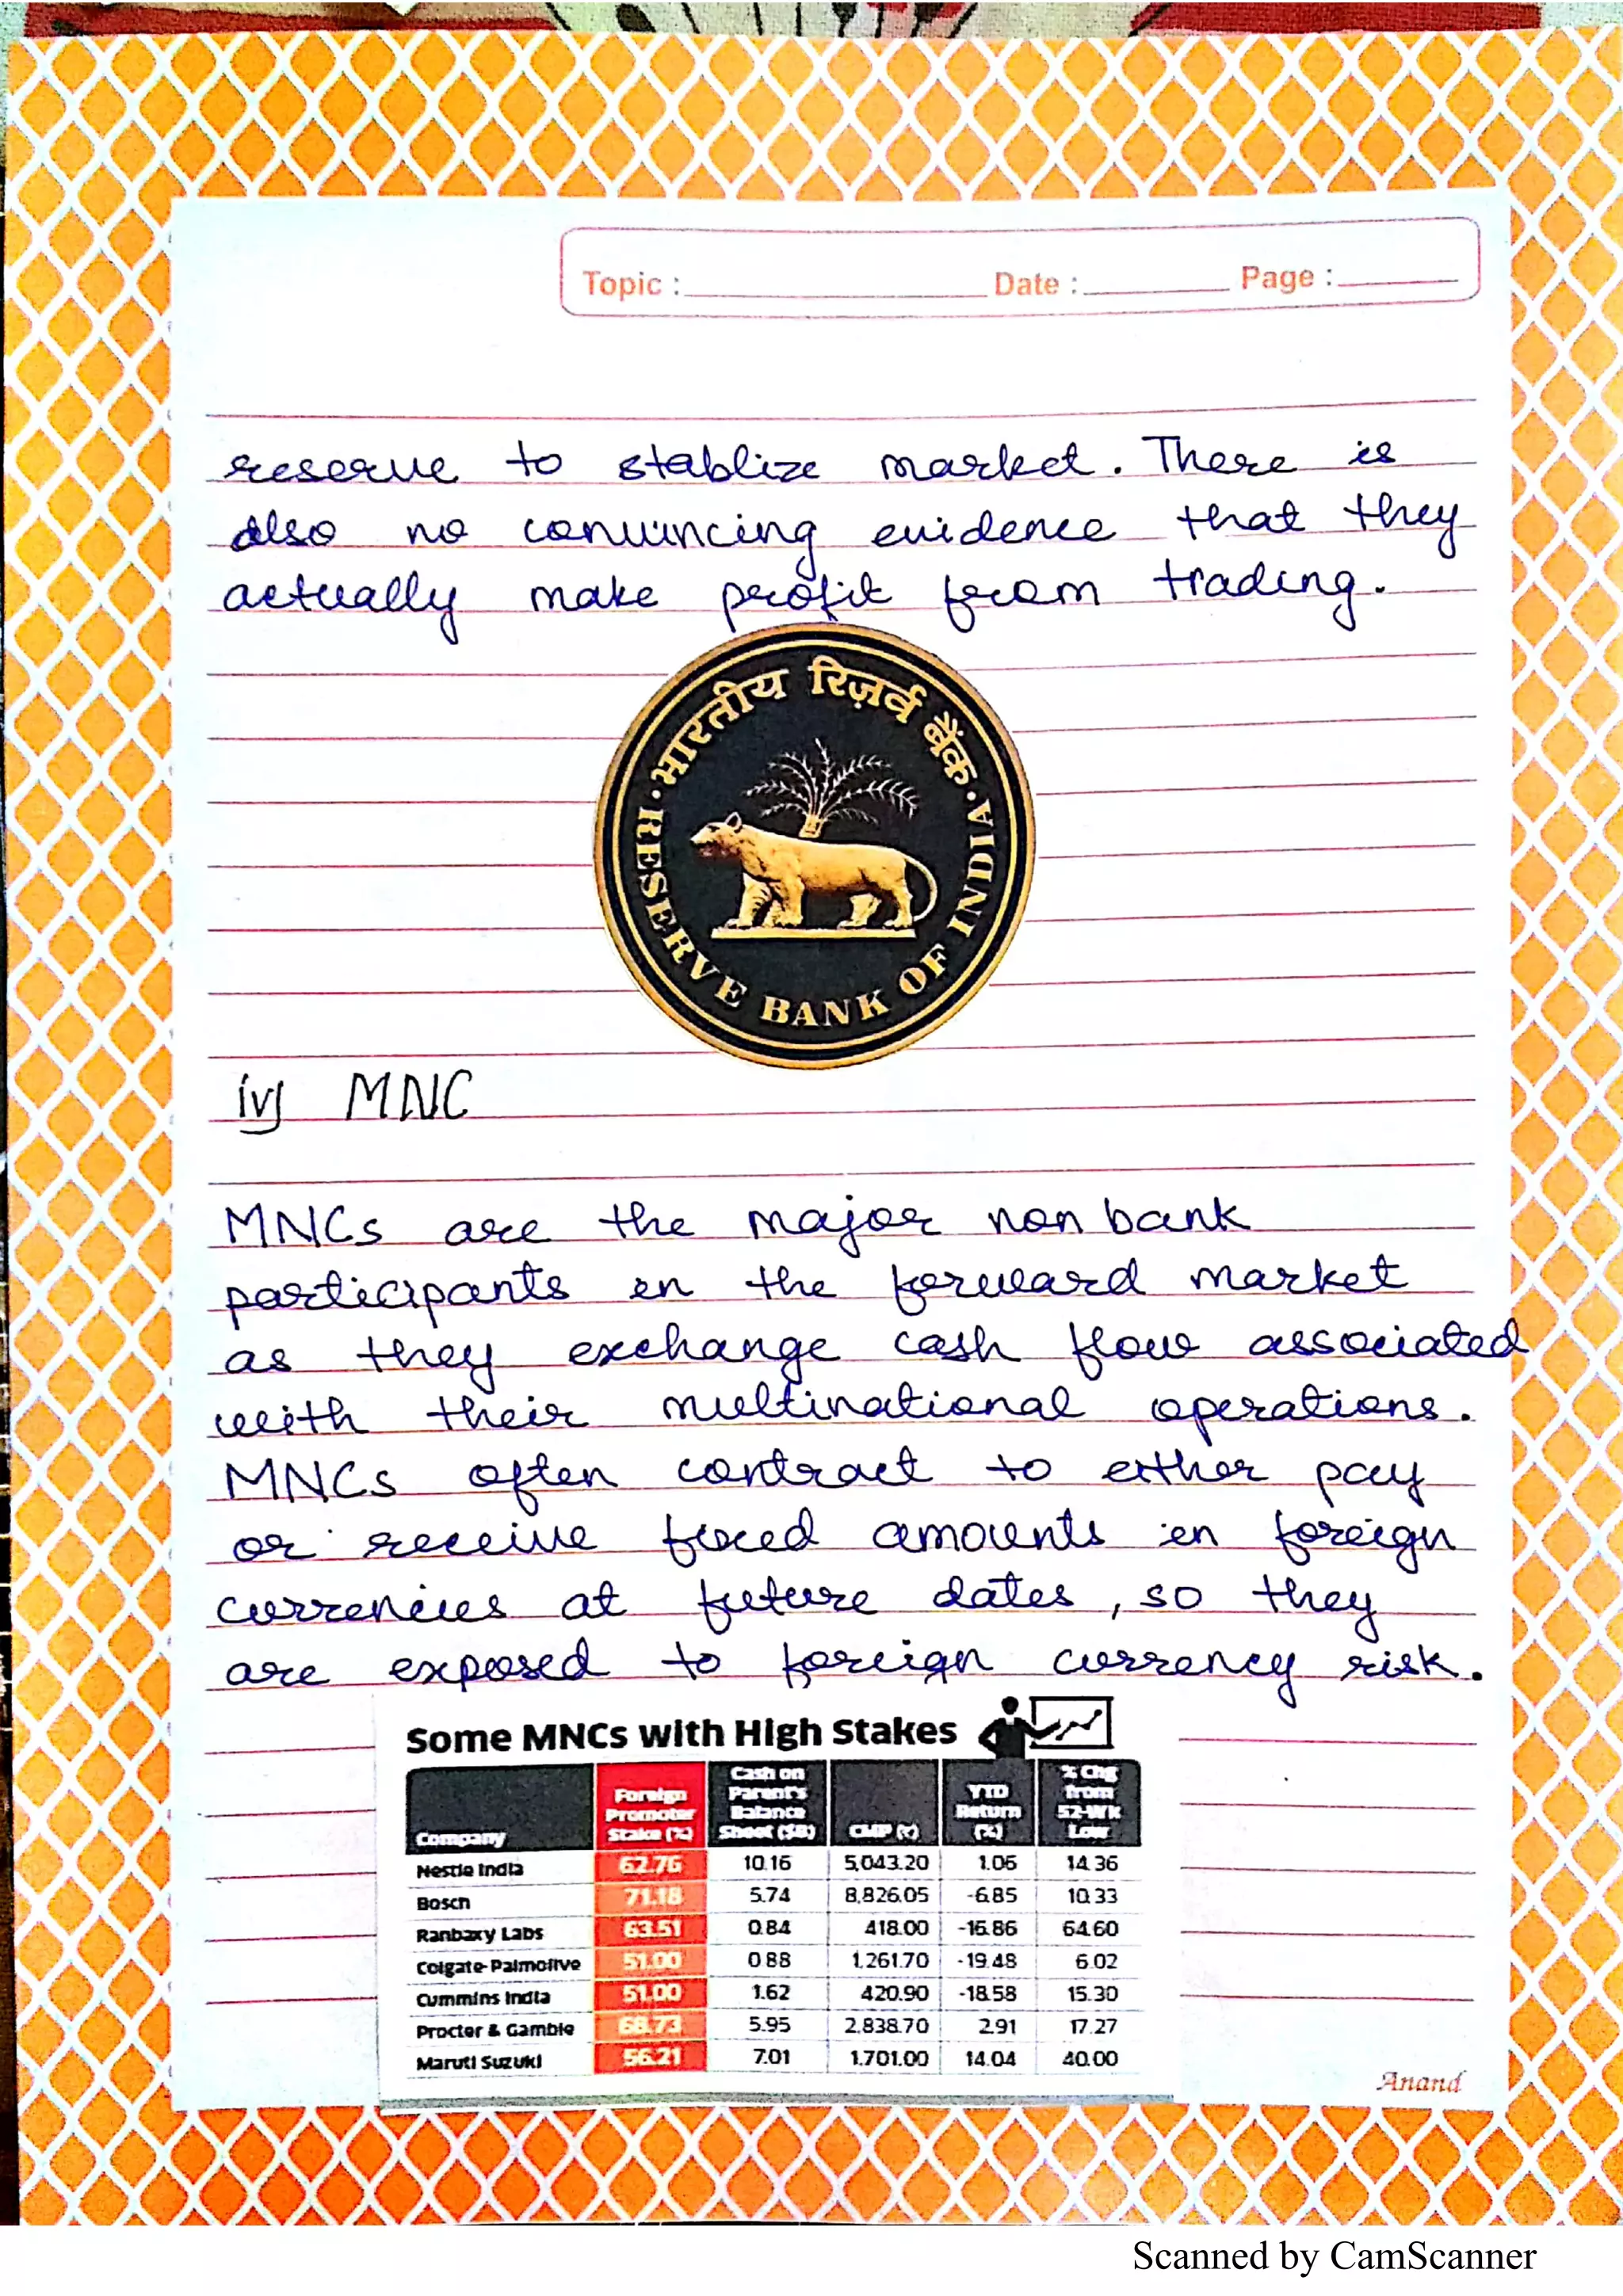 Topic : Date : Page :
reserve to stablize market. There is
also no convincing evidence that they
actually make profit from trading.
भारतीय रिज़र्व बैंक
RESERVE BANK OF INDIA
iv) MNC
MNCs are the major non bank
participants in the forward market
as they exchange cash flow associated
with their multinational operations.
MNCs often contract to either pay
or receive fixed amounts in foreign
currencies at future dates, so they
are exposed to foreign currency risk.
Some MNCs with High Stakes
Company Foreign Promoter Stake (%) Cash on Parent's Balance Sheet ($B) CMP (₹) YTD Return (%) % Chg from 52-Wk Low
Nestle India 62.76 10.16 5,043.20 1.06 14.36
Bosch 71.18 5.74 8,826.05 -6.85 10.33
Ranbaxy Labs 63.51 0.84 418.00 -16.86 64.60
Colgate-Palmolive 51.00 0.88 1,261.70 -19.48 6.02
Cummins India 51.00 1.62 420.90 -18.58 15.30
Procter & Gamble 68.73 5.95 2,838.70 2.91 17.27
Maruti Suzuki 56.21 7.01 1,701.00 14.04 40.00
Anand
Scanned by CamScanner